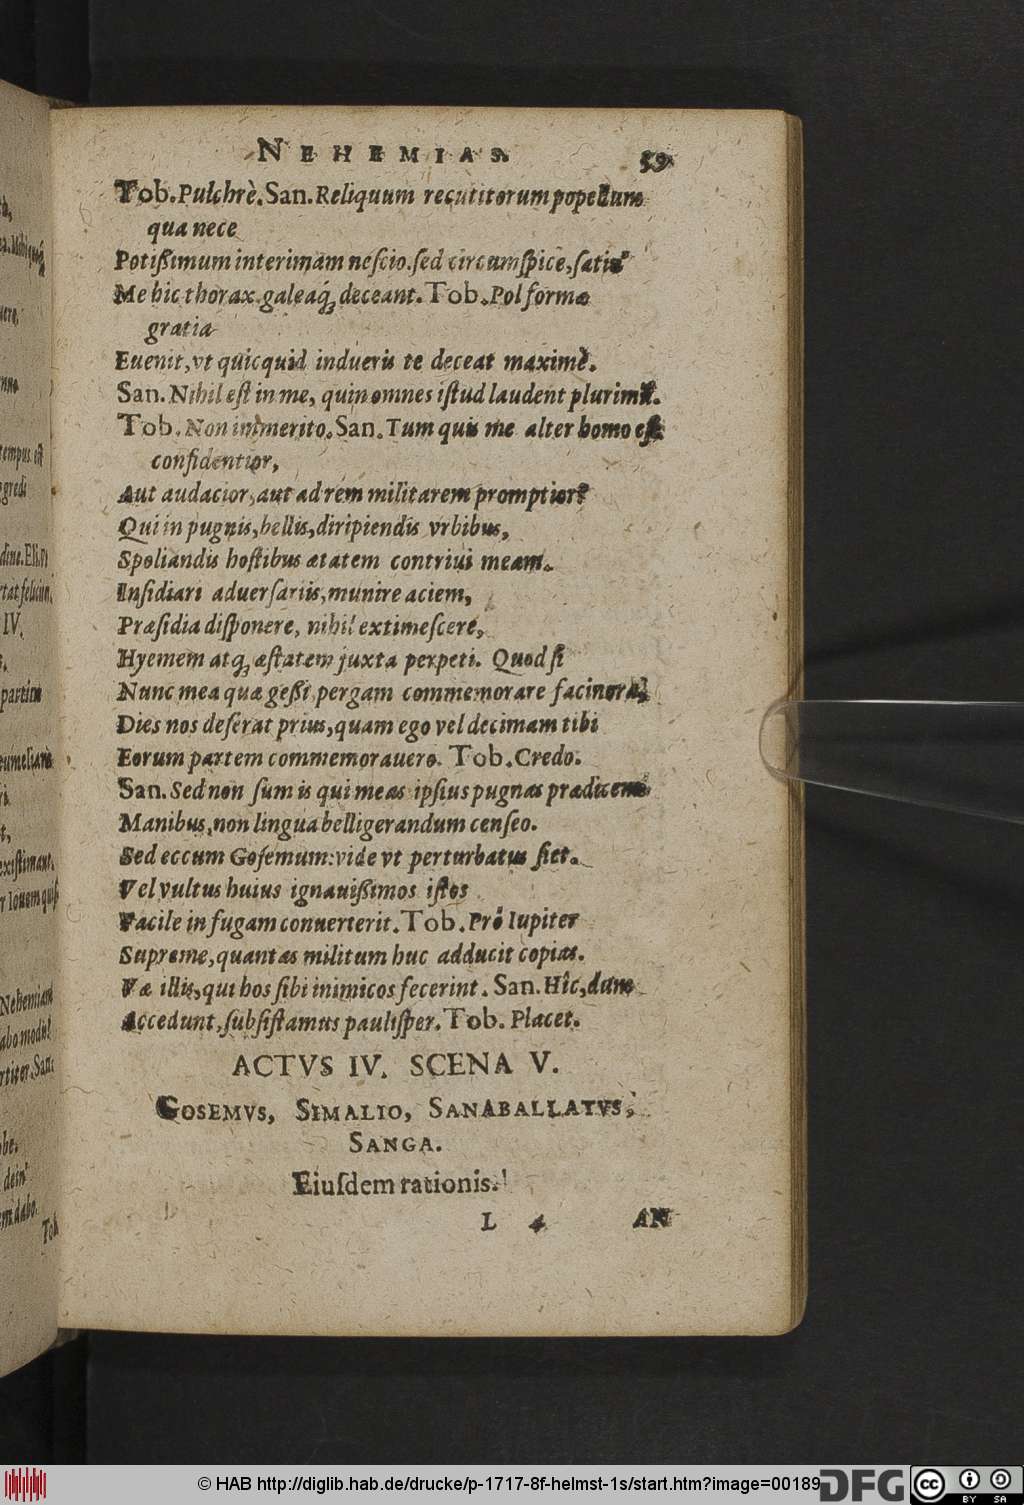 NEHEMIAS. 59
Tob. Pulchrè. San. Reliquum recutitorum popellum
qua nece
Potißimum interimam nescio. sed circumspice, satin'
Me hic thorax galeaq́; deceant. Tob. Pol formæ
gratia
Euenit, vt quicquid indueris te deceat maximè.
San. Nihil est in me, quin omnes istud laudent plurimi.
Tob. Non immerito. San. Tum quis me alter homo est
confidentior,
Aut audacior, aut ad rem militarem promptior?
Qui in pugnis, bellis, diripiendis vrbibus,
Spoliandis hostibus ætatem contriui meam.
Insidiari aduersariis, munire aciem,
Præsidia disponere, nihil extimescere,
Hyemem atq; æstatem juxta perpeti. Quod si
Nunc mea quæ geßi pergam commemorare facinora,
Dies nos deserat prius, quam ego vel decimam tibi
Eorum partem commemorauero. Tob. Credo.
San. Sed non sum is qui meas ipsius pugnas prædicem:
Manibus, non lingua belligerandum censeo.
Sed eccum Gosemum: vide vt perturbatus siet.
Vel vultus huius ignauißimos istos
Facile in fugam conuerterit. Tob. Prô Iupiter
Supreme, quantas militum huc adducit copias.
Væ illis, qui hos sibi inimicos fecerint. San. Hîc, dum
Accedunt, subsistamus paulisper. Tob. Placet.
ACTVS IV. SCENA V.
GOSEMVS, SIMALIO, SANABALLATVS,
SANGA.
Eiusdem rationis.
L 4 AN
© HAB http://diglib.hab.de/drucke/p-1717-8f-helmst-1s/start.htm?image=00189
DFG
cc BY SA